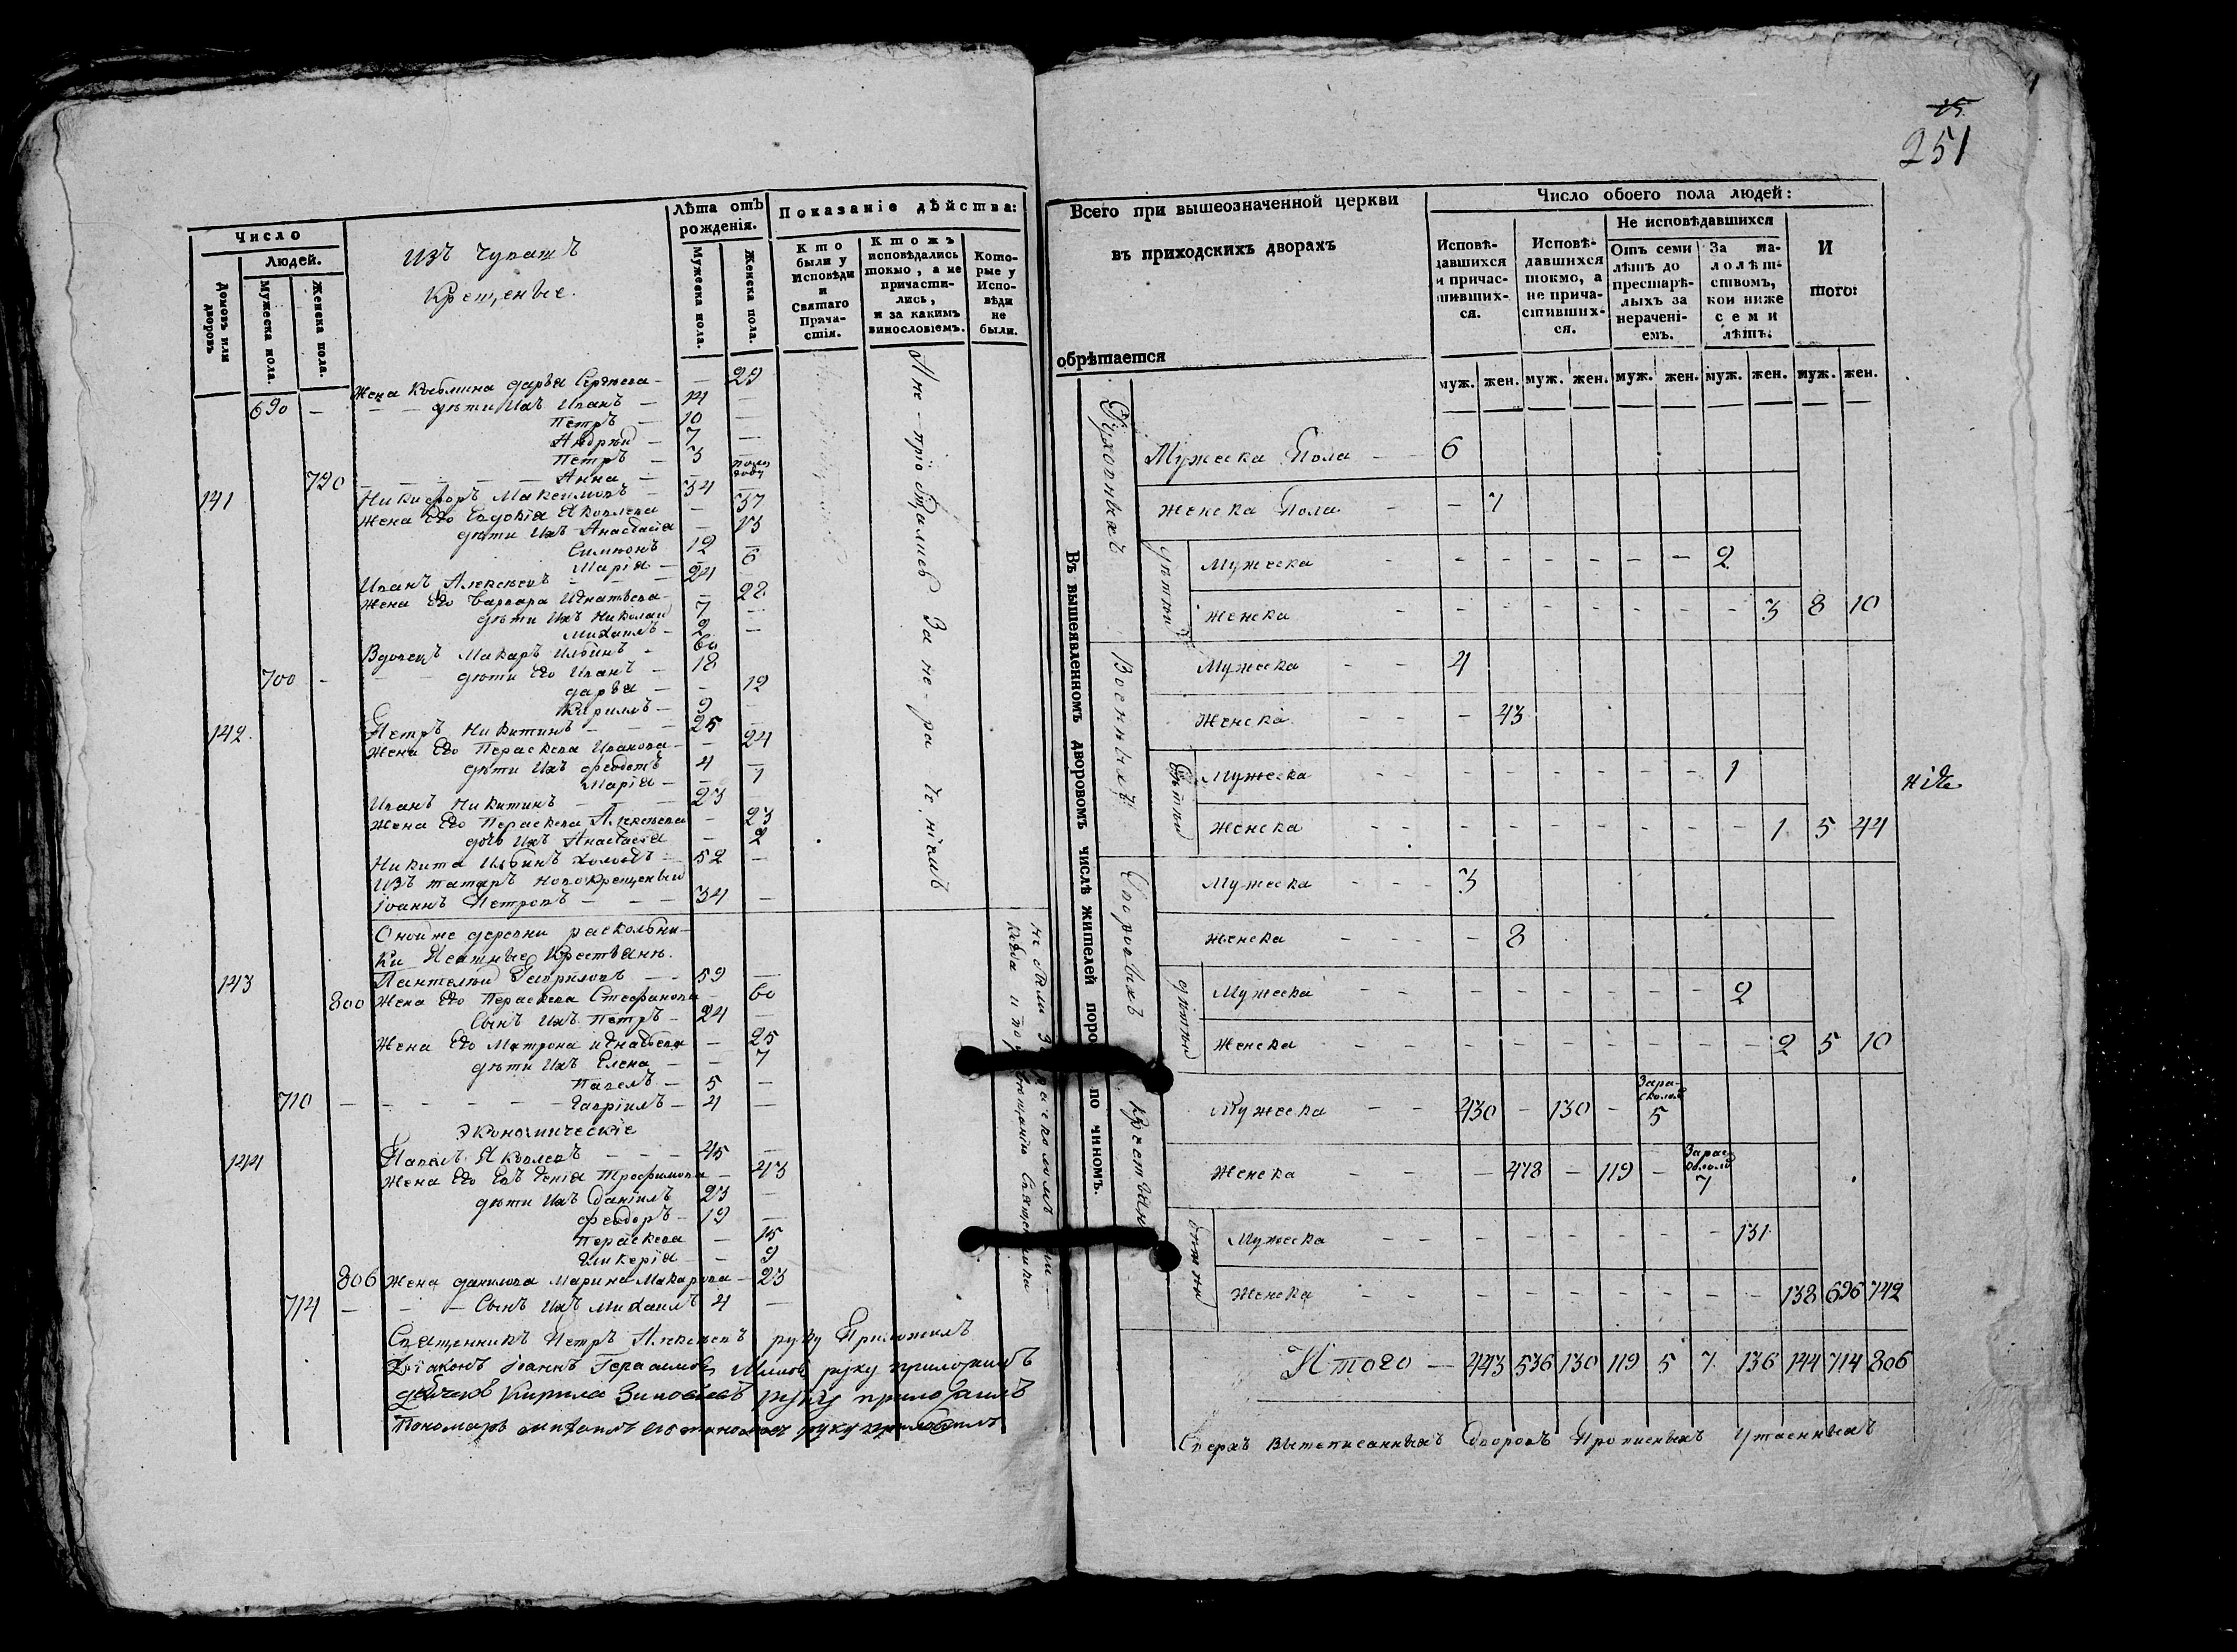 Число
Людей.
Домовъ или дворовъ
Мужеска пола.
Женска пола.
Изъ Чувашъ
Крещеные.
Лѣта отъ рожденія.
Мужеска пола.
Женска пола.
Показаніе дѣйства:
Кто были у Исповѣди и Святаго Причастія.
Ктожъ исповѣдались токмо, а не причастились, и за какимъ винословіемъ.
Которые у Исповѣди не были.
Жена Дарья Сергѣева – – 29
690 – – – дѣти Ихъ Иванъ – 14 –
Петръ – 10 –
Андрей – 7 –
Петръ – 3 –
790 – – – – – Анна –
141 Никифоръ Максимовъ – 34 –
Жена Его Евдокія Яковлева – 37
дѣти Ихъ Анастасія – 13
Симионъ 12 –
Марія – – 6
Иванъ Алексѣевъ – – – 24
Жена Его Варвара Игнатьева – – 22
дѣти Ихъ Николай 7 –
Михаилъ – 2 –
Вдовецъ Макаръ Ильинъ – 60
700 – – – дѣти Его Иванъ – 18
Дарья – – 12
Кирилъ – 9 –
142 Петръ Никитинъ – – – 25 –
Жена Его Параскева Иванова – – 24
дѣти Ихъ Феодотъ 4 –
Марія – – 1
Иванъ Никитинъ – – – 23
Жена Его Параскева Алексѣева – 23
дочь Ихъ Анастасія – 2
Никита Ильинъ холостъ – 52 –
Изъ татаръ новокрещеный
Іоаннъ Петровъ – – – 34 –
Оной же деревни расколни-
ки Ясашные Крестьяне.
143 Пантелей Гавриловъ – – 59 –
800 Жена Его Параскева Стефанова – 60
Сынъ Ихъ Петръ – 24 –
Жена Его Матрона Игнатьева – 25
дѣти Ихъ Елена – – 7
Павелъ – 5 –
710 – – – – – – Гавріилъ – 4 –
Экономическіе
144 Павелъ Яковлевъ – – – 45 –
Жена Его Евгенія Трофимова – 43
дѣти Ихъ Даніилъ 23 –
Феодоръ – 19 –
Параскева – 15
Гликерія – – 9
806 Жена Данилова Марина Макарова – 23
714 – – – Сынъ Ихъ Михаилъ 4 –
Священникъ Петръ Алексѣевъ руку Приложилъ
Діаконъ Іоаннъ Герасимовъ руку приложилъ
Дьячокъ Кирила Зиновьевъ руку приложилъ
Пономарь Михаилъ руку приложилъ
А не пріобщились За нераченіемъ
251
Всего при вышеозначенной церкви
въ приходскихъ дворахъ
обрѣтается
Число обоего пола людей:
Исповѣдавшихся и причастившихся.
Исповѣдавшихся токмо, а не причастившихся.
Не исповѣдавшихся
Отъ семи лѣтъ до престарѣлыхъ за нерачені-емъ.
За малолѣтствомъ, кои ниже семи лѣтъ.
И того:
муж. жен. муж. жен. муж. жен. муж. жен. муж. жен.
Въ вышеявленномъ дворовомъ числѣ жителей по чиномъ.
Духовныхъ
Мужеска Пола – – 6
Женска Пола – – 7
дѣтей
Мужеска – – – – – – – 2
Женска – – – – – – – – 3 8 10
Военныхъ
Мужеска – – 4
Женска – – – 43
дѣтей
Мужеска – – – – – – – – 1
Женска – – – – – – – – – 1 5 44
Дворовыхъ
Мужеска – – – 3
Женска – – – – 8
дѣтей
Мужеска – – – – – – – – 2
Женска – – – – – – – – – 2 5 10
Крестьянъ
Мужеска – – 430 – 130 – За расколомъ 5
Женска – – – 478 – 119 – За расколомъ 7
дѣтей
Мужеска – – – – – – – – 131
Женска – – – – – – – – – 138 696 742
Итого – 443 536 130 119 5 7 136 144 714 806
Сверхъ вышеписанныхъ дворовъ Прописныхъ Утаенныхъ